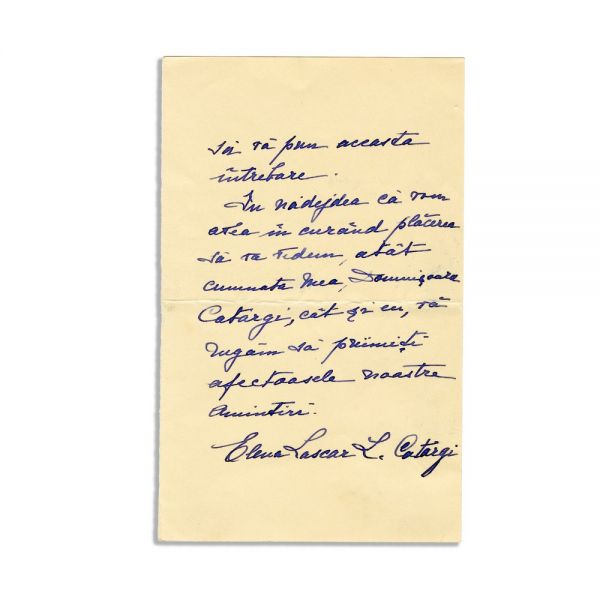 să vă pun aceasta
întrebare.
În nădejdea că vom
avéa în curând plăcerea
să vă vedem, atât
cumnata mea, Domnișoara
Catargi, cât și eu, vă
rugăm să primiți
afectoasele noastre
amintiri.
Elena Lascar L. Catargi